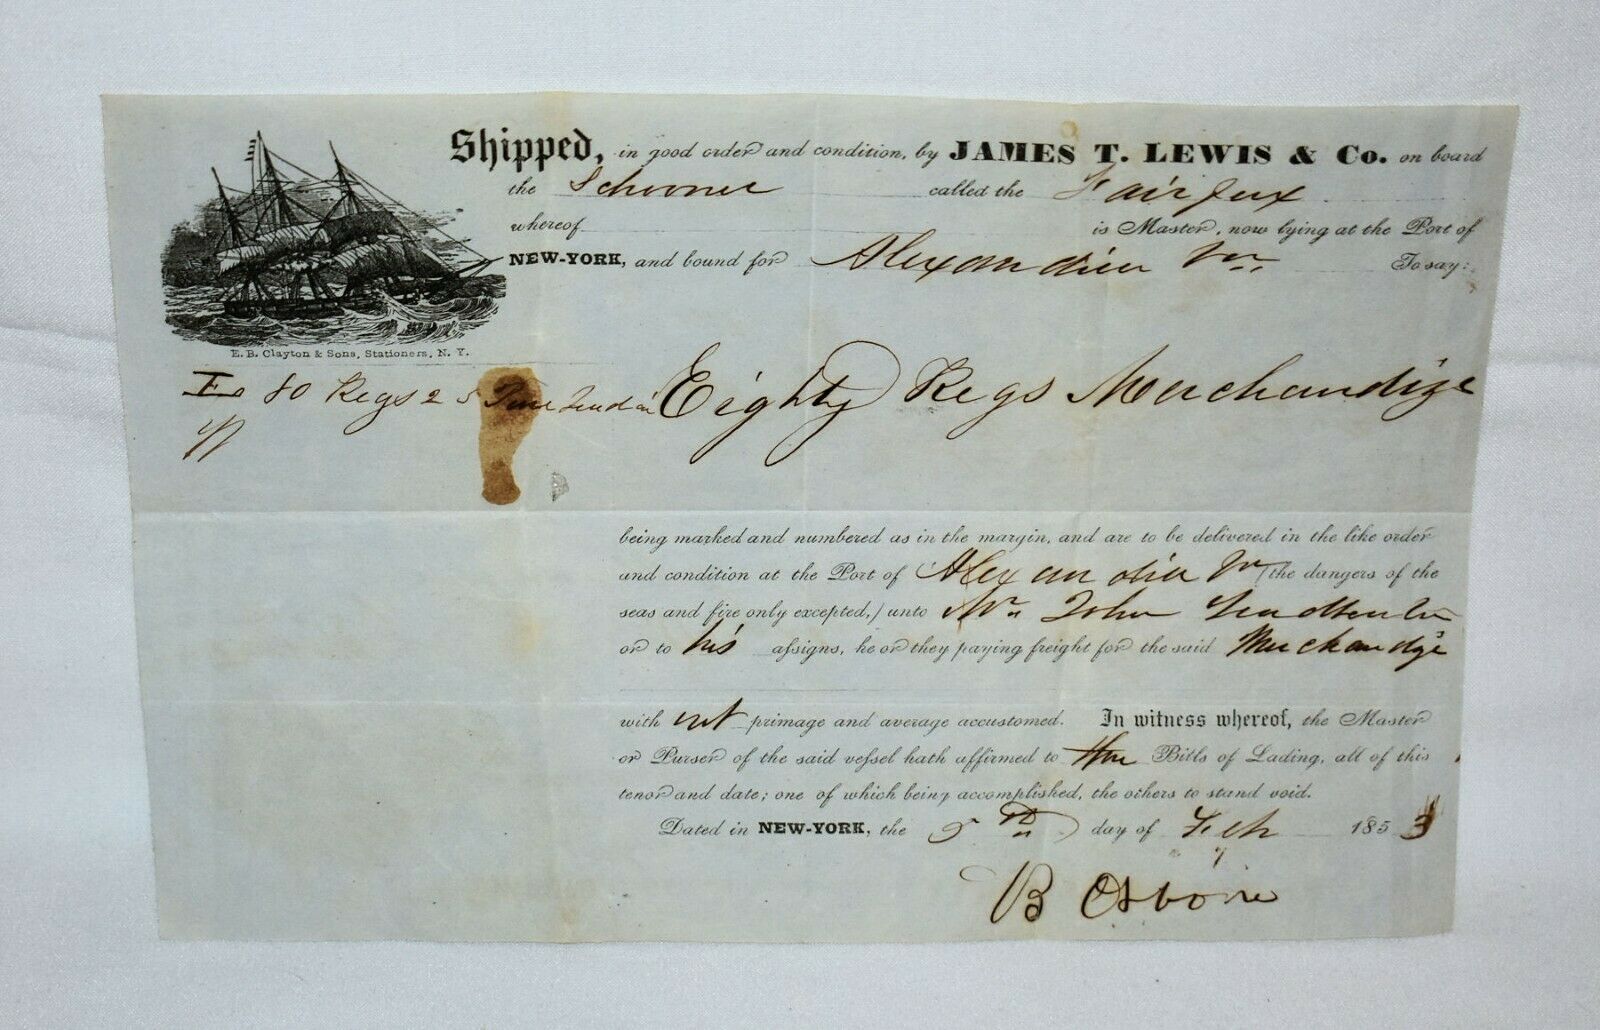 Shipped, in good order and condition, by JAMES T. LEWIS & Co. on board
the Schooner called the Fairfax
whereof is Master, now lying at the Port of
NEW-YORK, and bound for Alexandria Va. To say:
E. B. Clayton & Sons, Stationers, N. Y.
80 Kegs
Eighty Kegs Merchandize
being marked and numbered as in the margin, and are to be delivered in the like order
and condition at the Port of Alexandria Va (the dangers of the
seas and fire only excepted,) unto Mr. John
or to his assigns, he or they paying freight for the said Merchandize
with out primage and average accustomed. In witness whereof, the Master
or Purser of the said vessel hath affirmed to Bills of Lading, all of this
tenor and date; one of which being accomplished, the others to stand void.
Dated in NEW-YORK, the day of Feby 1853
B Osborne